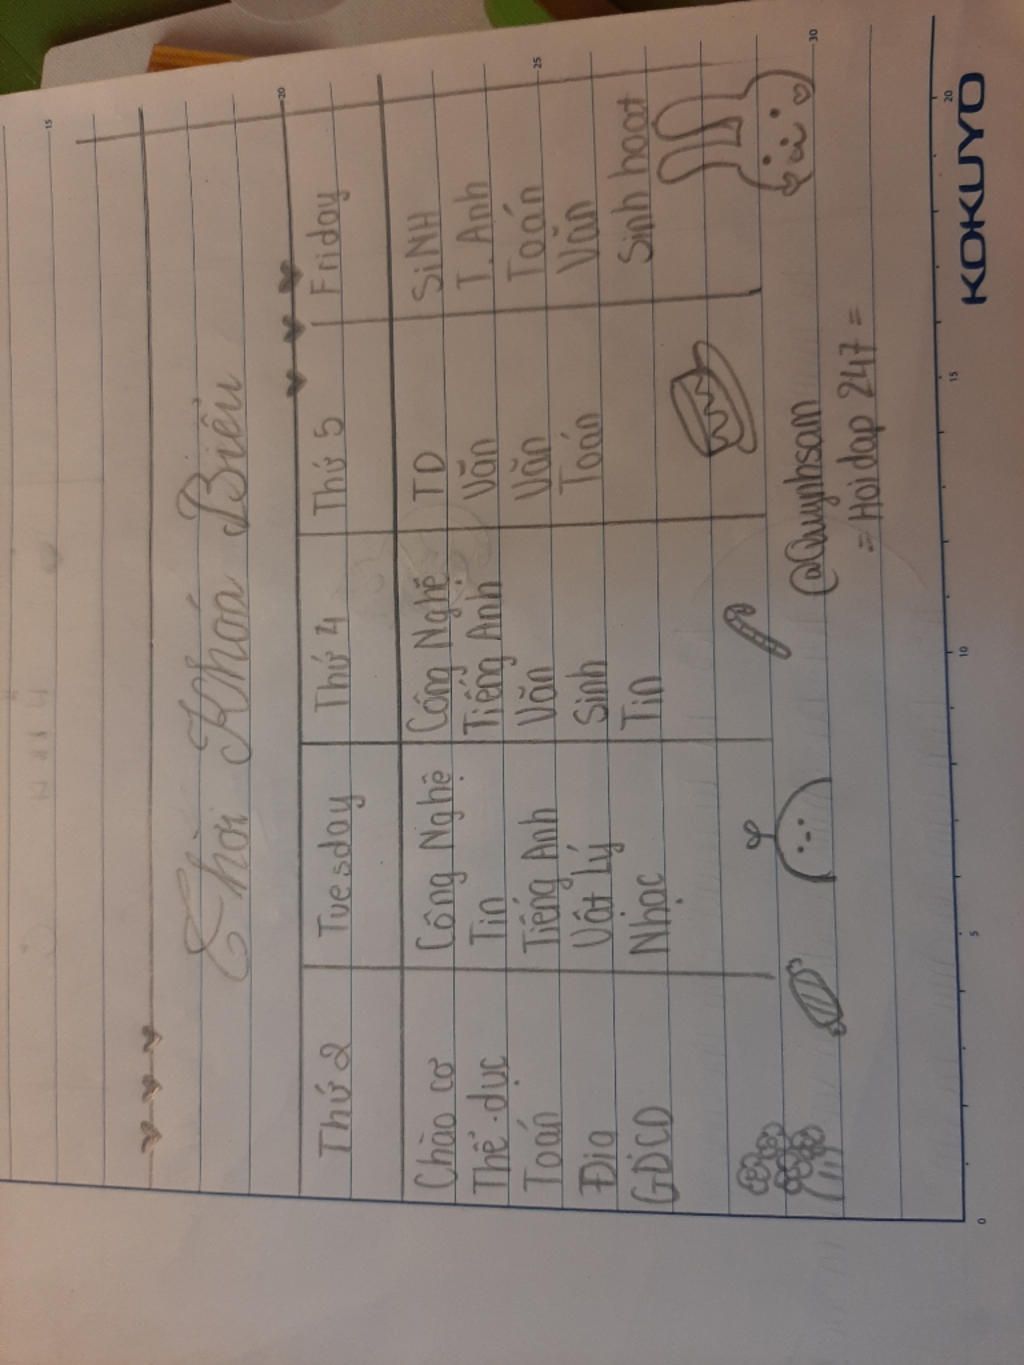 Thời Khóa Biểu
Thứ 2 Tuesday Thứ 4 Thứ 5 Friday
Chào cơ Công Nghệ Công Nghệ TD SiNH
Thể dục Tin Tiếng Anh Văn T. Anh
Toán Tiếng Anh Văn Văn Toán
Địa Vật Lý Sinh Toán Văn
GDCD Nhạc Tin Sinh hoạt
@Quynhsam
= Hoidap 247 =
KOKUYO
15
20
25
30
0 5 10 15 20